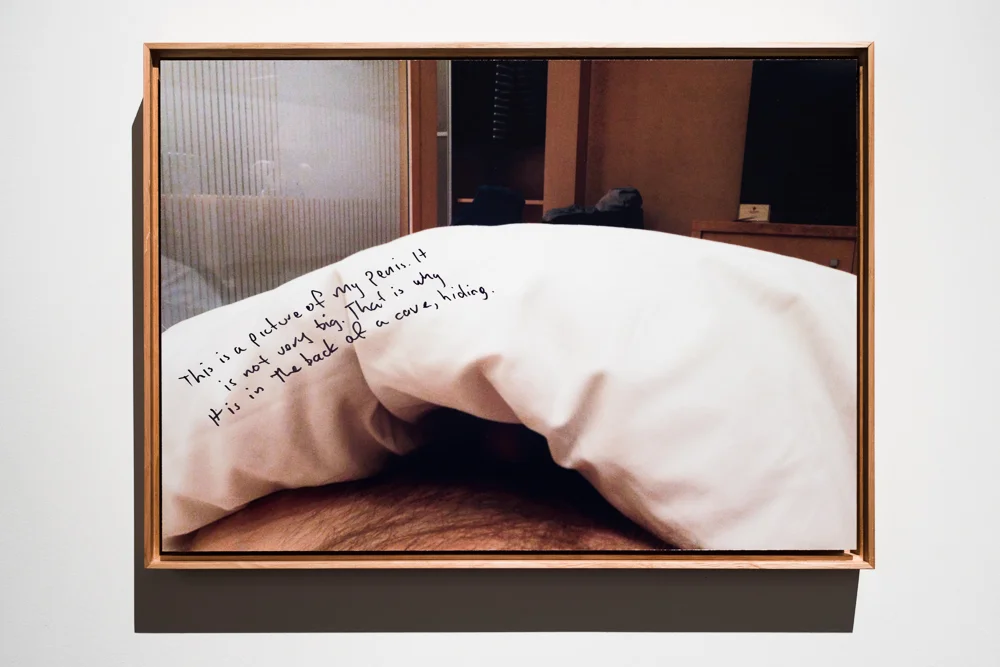 This is a picture of my Penis. It
is not very big. That is why
It is in the back of a cave, hiding.